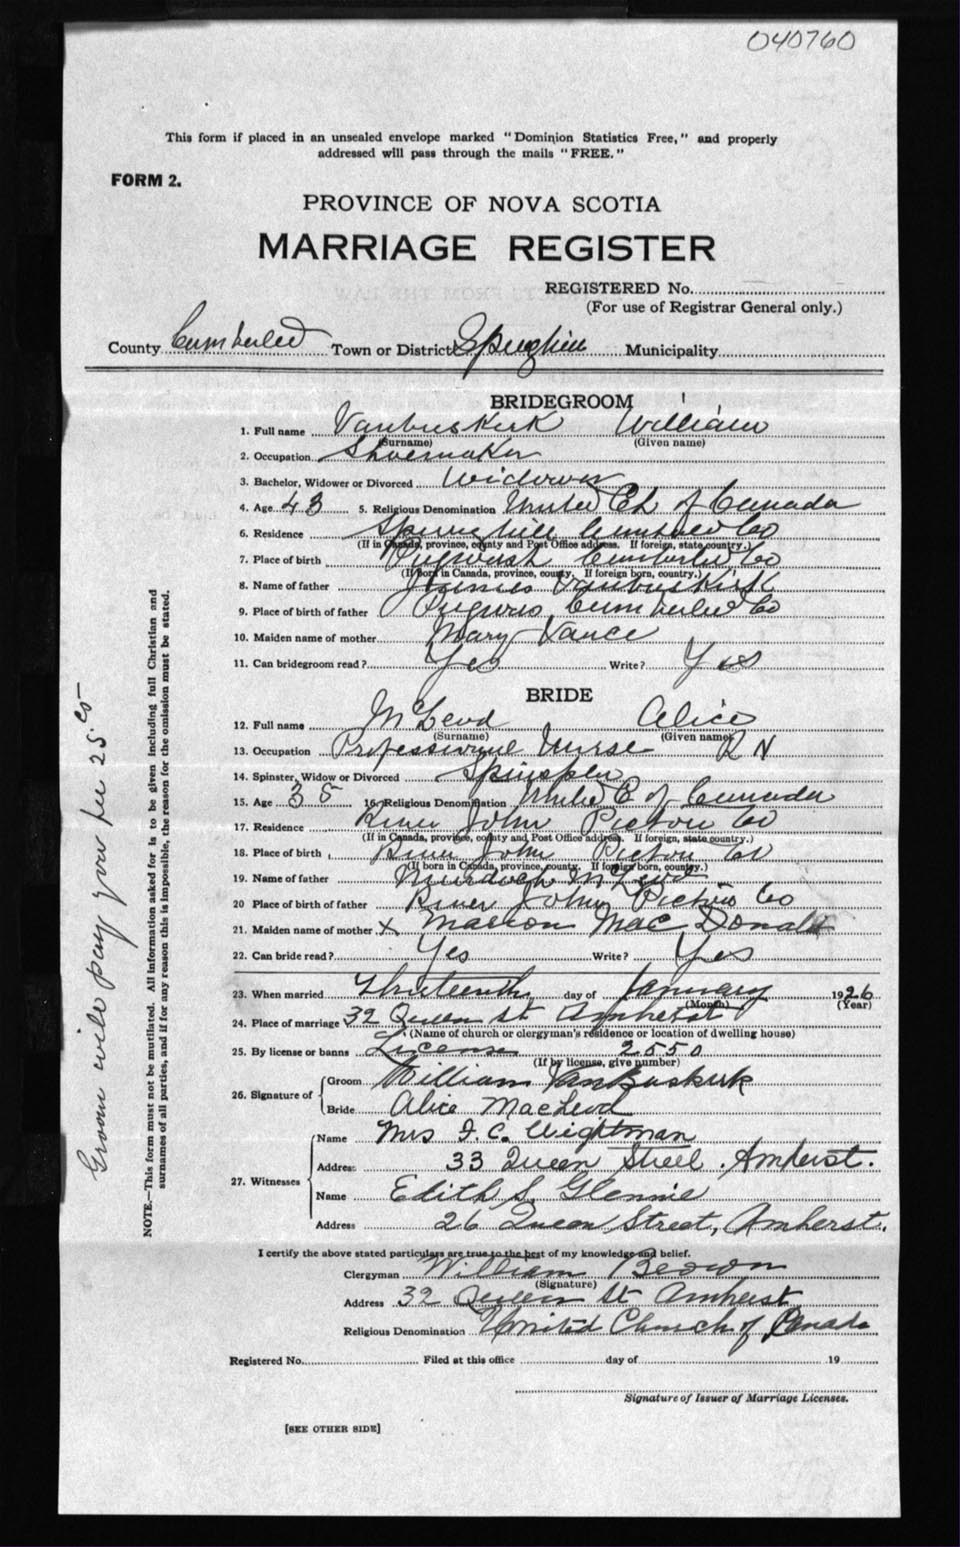 040760
This form if placed in an unsealed envelope marked "Dominion Statistics Free," and properly
addressed will pass through the mails "FREE."
FORM 2.
PROVINCE OF NOVA SCOTIA
MARRIAGE REGISTER
REGISTERED No.
(For use of Registrar General only.)
County Cumberland Town or District Springhill Municipality
BRIDEGROOM
1. Full name Vanbuskirk William
(Surname) (Given name)
2. Occupation Shoemaker
3. Bachelor, Widower or Divorced Widower
4. Age 43 5. Religious Denomination United Ch of Canada
6. Residence Springhill Cumberland Co
(If in Canada, province, county and Post Office address. If foreign, state country.)
7. Place of birth Pugwash Cumberland Co
(If born in Canada, province, county. If foreign born, country.)
8. Name of father James Vanbuskirk
9. Place of birth of father Pugwash Cumberland Co
10. Maiden name of mother Mary Vance
11. Can bridegroom read? Yes Write? Yes
BRIDE
12. Full name McLeod Alice
(Surname) (Given name)
13. Occupation Professional Nurse R N
14. Spinster, Widow or Divorced Spinster
15. Age 38 16. Religious Denomination United C of Canada
17. Residence River John Pictou Co
(If in Canada, province, county and Post Office address. If foreign, state country.)
18. Place of birth River John Pictou Co
(If born in Canada, province, county. If foreign born, country.)
19. Name of father Murdoch McLeod
20 Place of birth of father River John Pictou Co
21. Maiden name of mother x Marion MacDonald
22. Can bride read? Yes Write? Yes
23. When married Thirteenth day of January 1926
(Month) (Year)
24. Place of marriage 32 Queen St Amherst
(Name of church or clergyman's residence or location of dwelling house)
25. By license or banns License 2550
(If by license, give number)
26. Signature of Groom William VanBuskirk
Bride Alice MacLeod
27. Witnesses Name Mrs F. C. Wightman
Address 33 Queen Street. Amherst.
Name Edith S. Glennie
Address 26 Queen Street, Amherst.
I certify the above stated particulars are true to the best of my knowledge and belief.
Clergyman William Brown
(Signature)
Address 32 Queen St Amherst
Religious Denomination United Church of Canada
Registered No. Filed at this office day of 19
Signature of Issuer of Marriage Licenses.
[SEE OTHER SIDE]
NOTE.—This form must not be mutilated. All information asked for is to be given including full Christian and
surnames of all parties, and if for any reason this is impossible, the reason for the omission must be stated.
Groom will pay you fee 25 cts